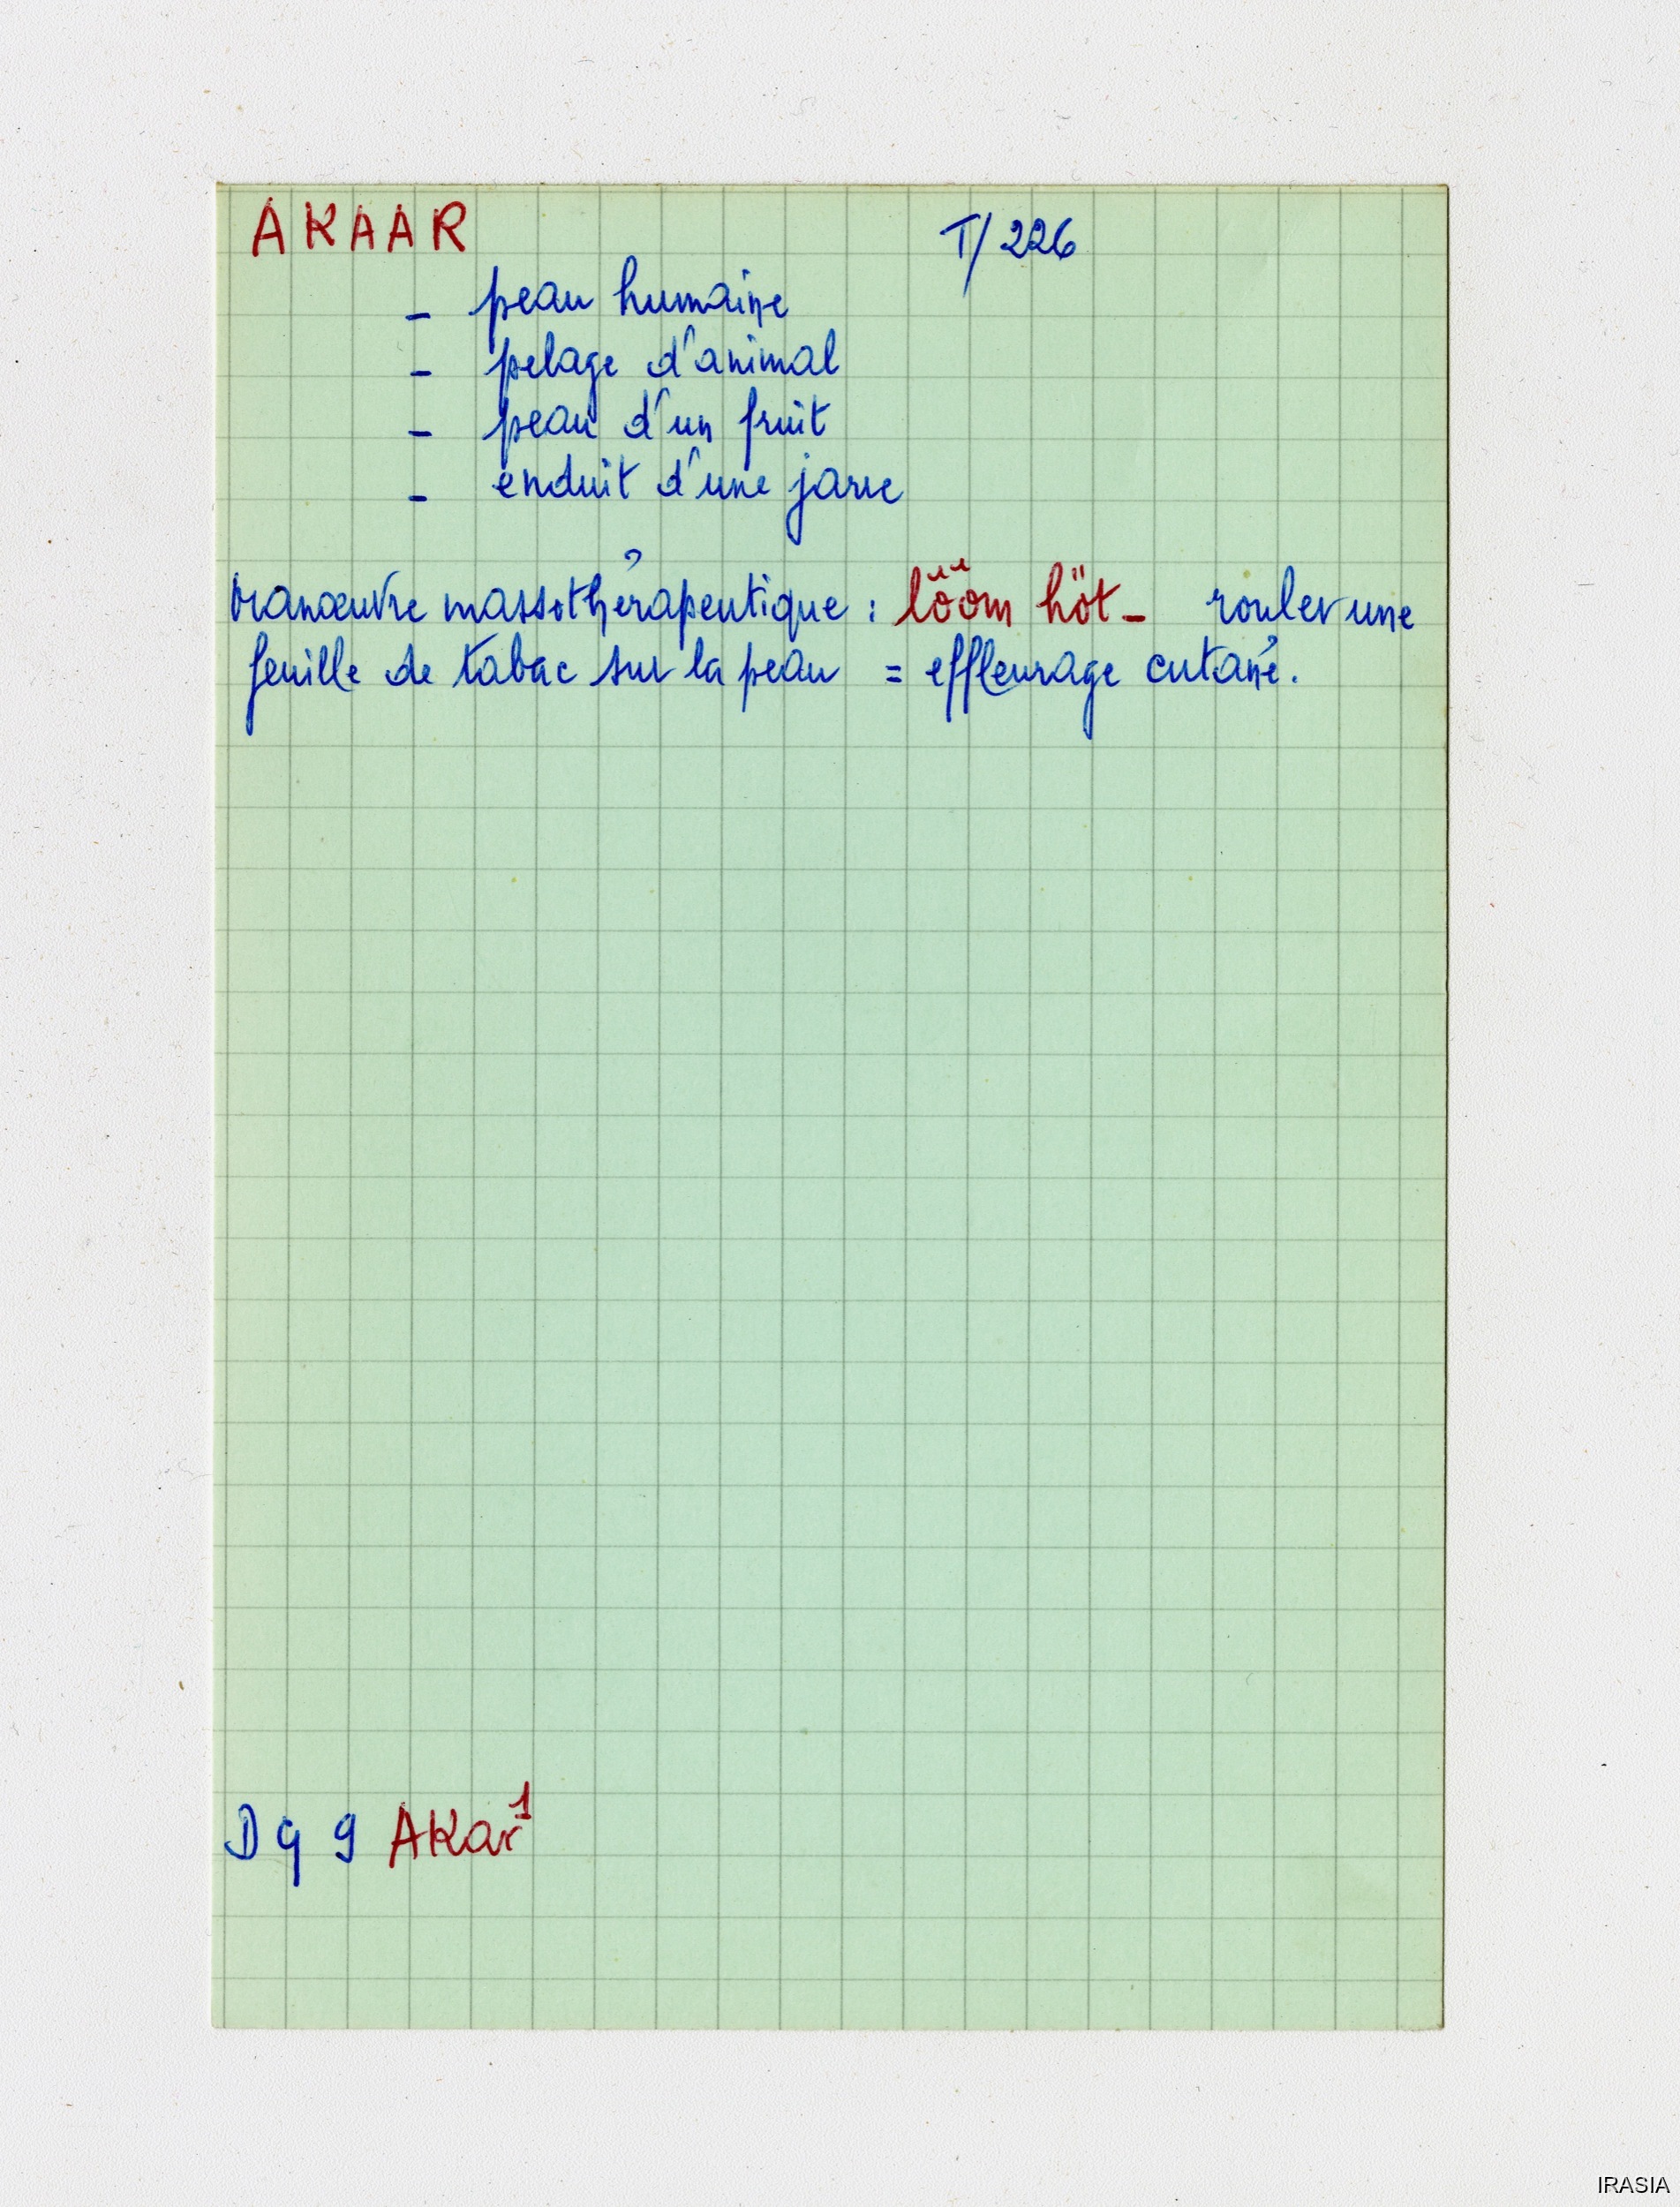 AKAAR T/226
- peau humaine
- pelage d'animal
- peau d'un fruit
- enduit d'une jarre
Manœuvre massothérapeutique : lööm höt - rouler une
feuille de tabac sur la peau = effleurage cutané.
Dq 9 AKar¹
IRASIA